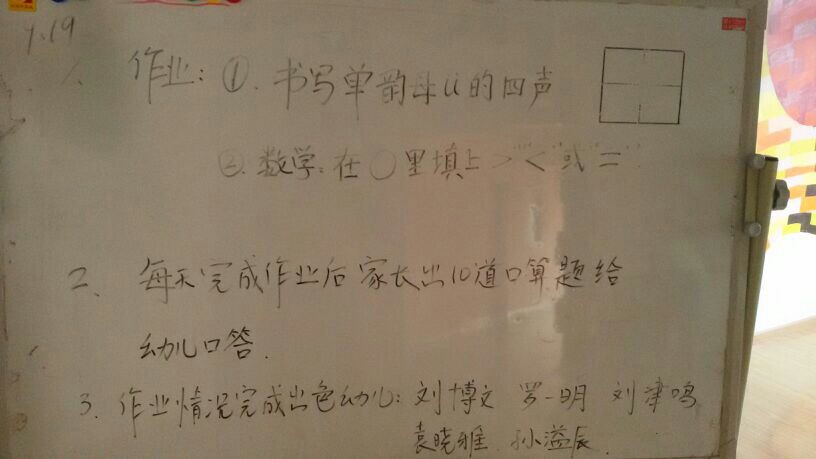 7.19
1. 作业:①.书写单韵母ü的四声
②.数学:在○里填上">""<"或"="
2、每天完成作业后家长出10道口算题给
幼儿口答.
3、作业情况完成出色幼儿:刘博文 罗一明 刘津鸣
袁晓雅 孙溢辰